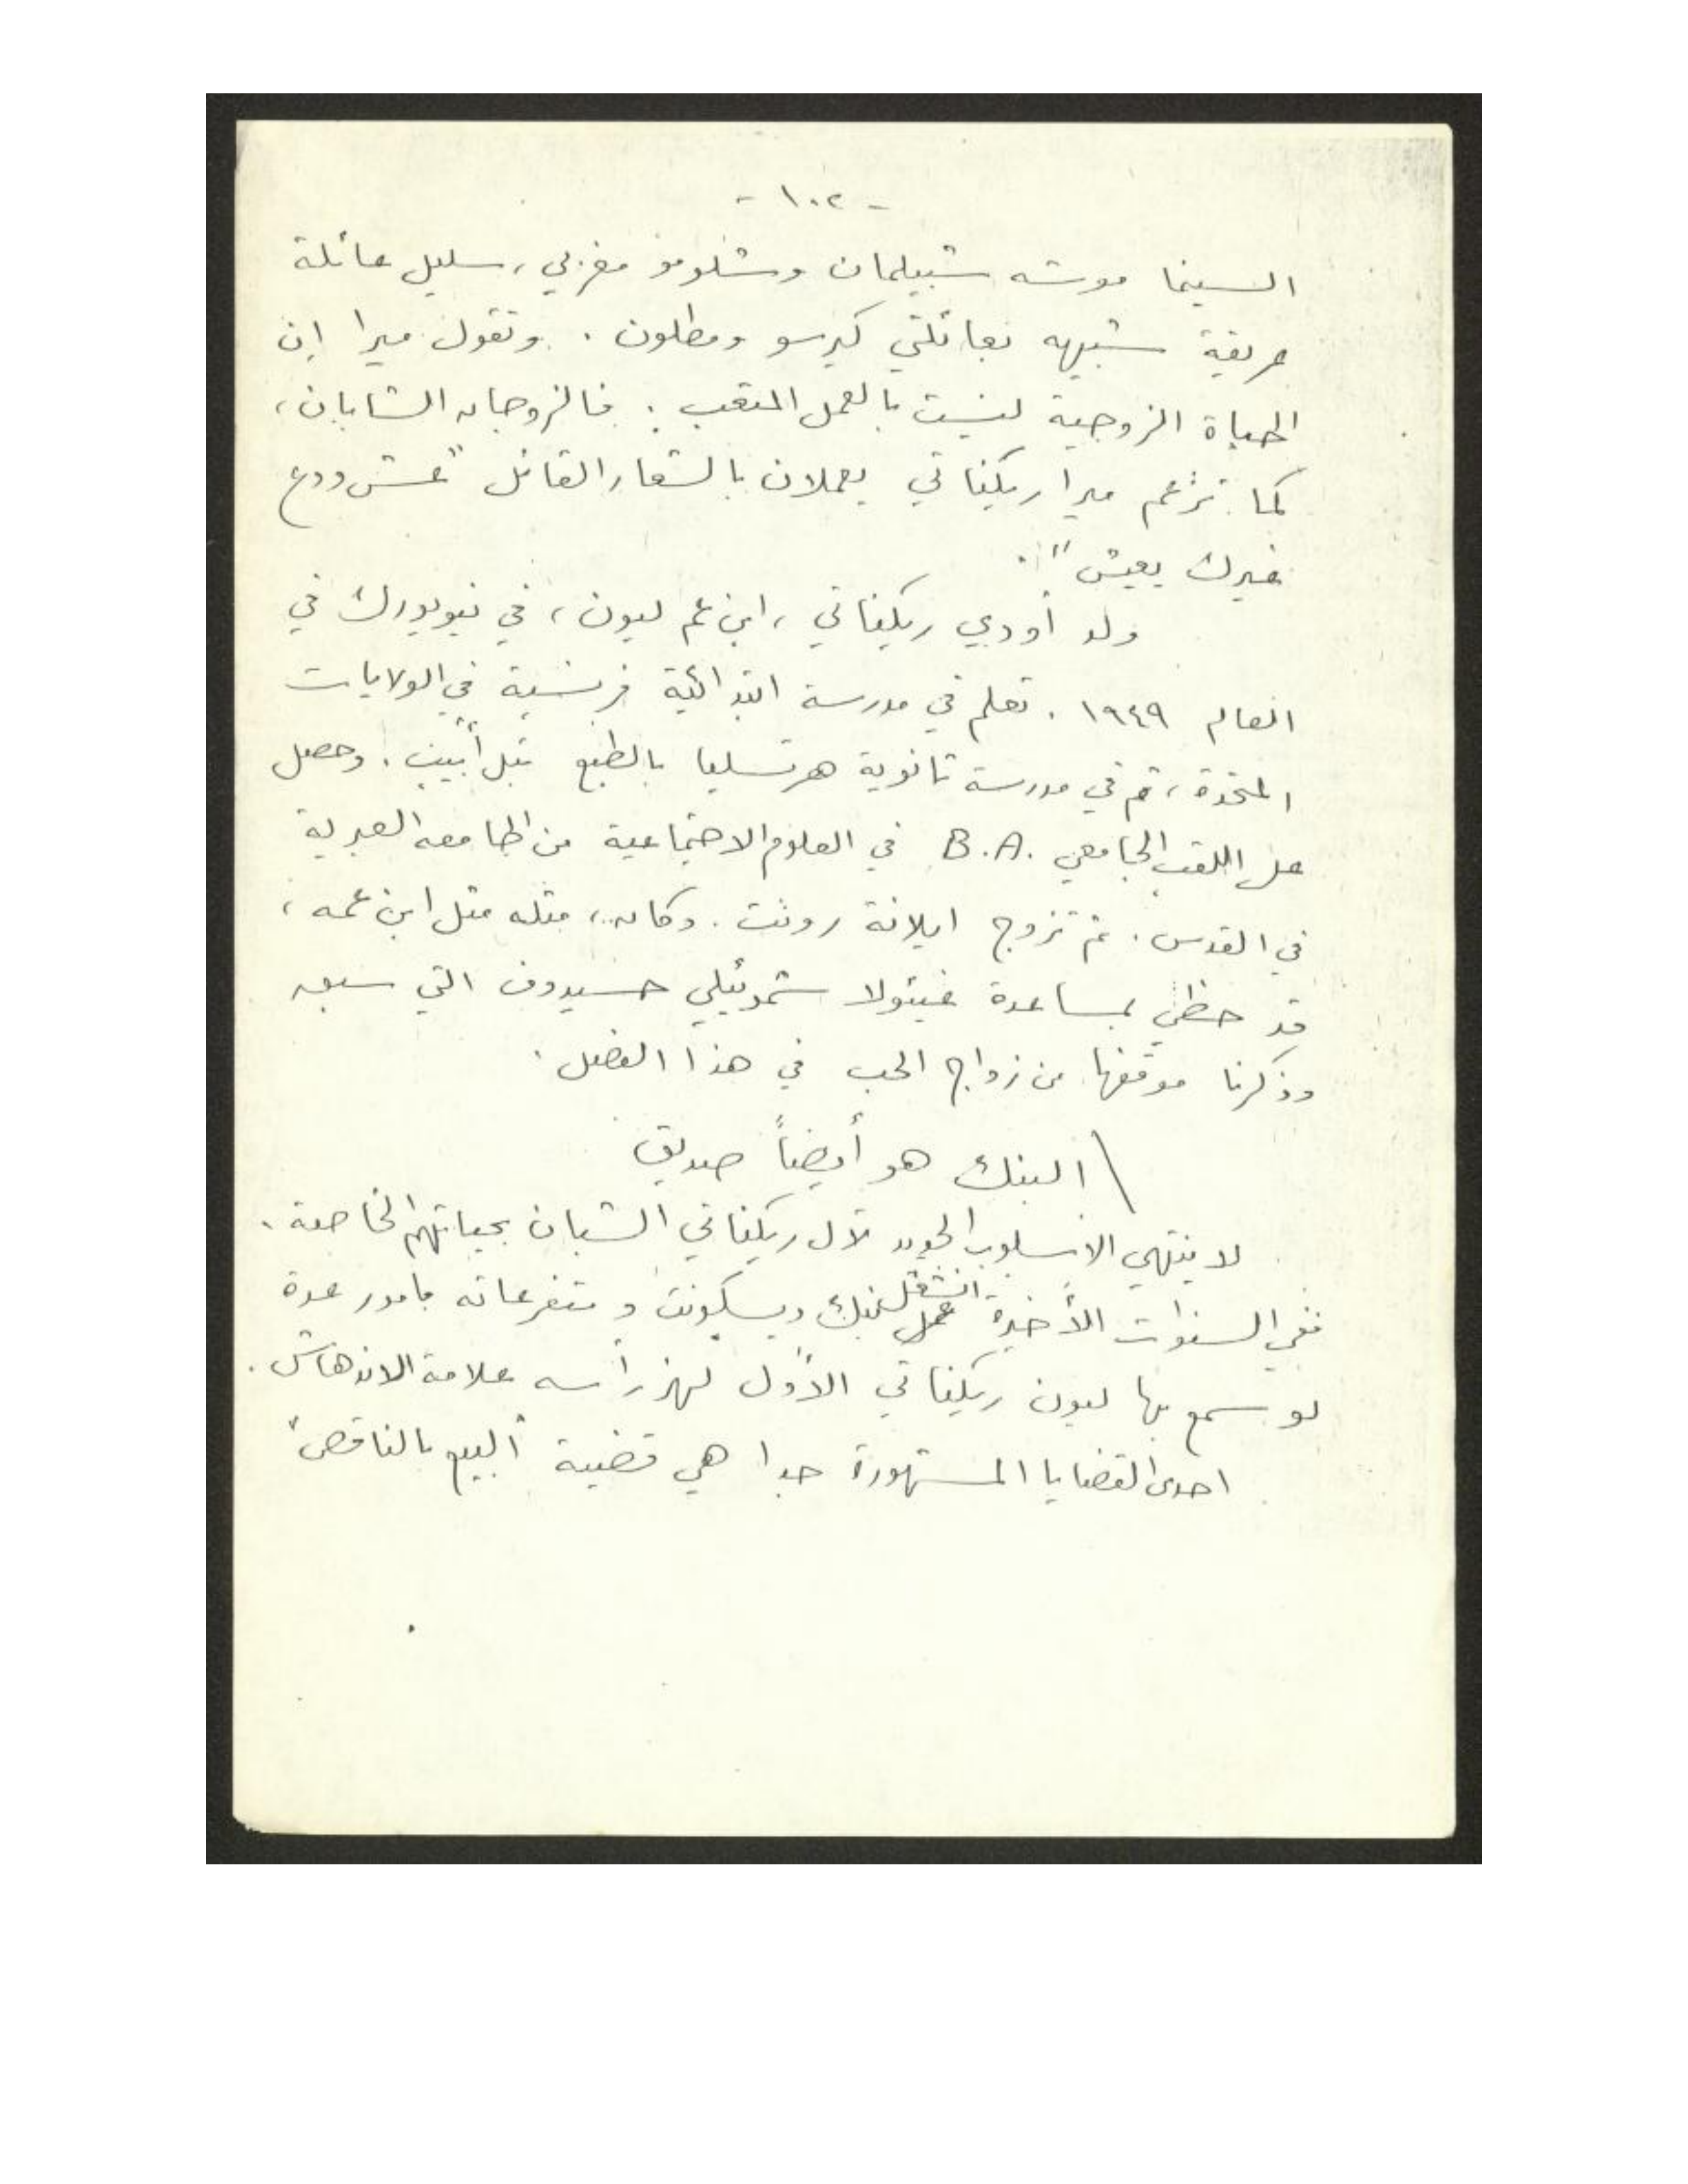 - ١٠٢ -
السينما موشه شبيلمان وشلومو مغربي، سليل عائلة
عريقة شبيهه بعائلتي كرسو ومطلون. وتقول ميرا ان
الحياة الزوجية ليست بالعمل المتعب. فالزوجان الشابان،
كما تزعم ميرا ريكناتي يعملان بالشعار القائل "عش ودع
غيرك يعيش".
ولد أودي ريكناتي، ابن عم ليون، في نيويورك في
العام ١٩٤٩. تعلم في مدرسة ابتدائية فرنسية في الولايات
المتحدة، ثم في مدرسة ثانوية هرتسليا بالطبع بتل أبيب. وحصل
على اللقب الجامعي B.A. في العلوم الاجتماعية من الجامعه العبرية
في القدس. ثم تزوج ايلانة رونت. وكان، مثله مثل ابن عمه،
قد حظي بمساعدة غيئولا شموئيلي حسيدوف التي سبق
وذكرنا موقفها من زواج الحب في هذا الفصل.
\ البنك هو أيضاً صديق
لا ينتهي الاسلوب الجديد لآل ريكناتي الشبان بحياتهم الخاصة.
انشغل
ففي السنوات الأخيرة عمل بنك ديسكونت و متفرعاته بامور عدة
لو سمع بها ليون ريكناتي الأول لهز رأسه علامة الاندهاش.
احدى القضايا المشهورة جدا هي قضية "البيع بالناقص"